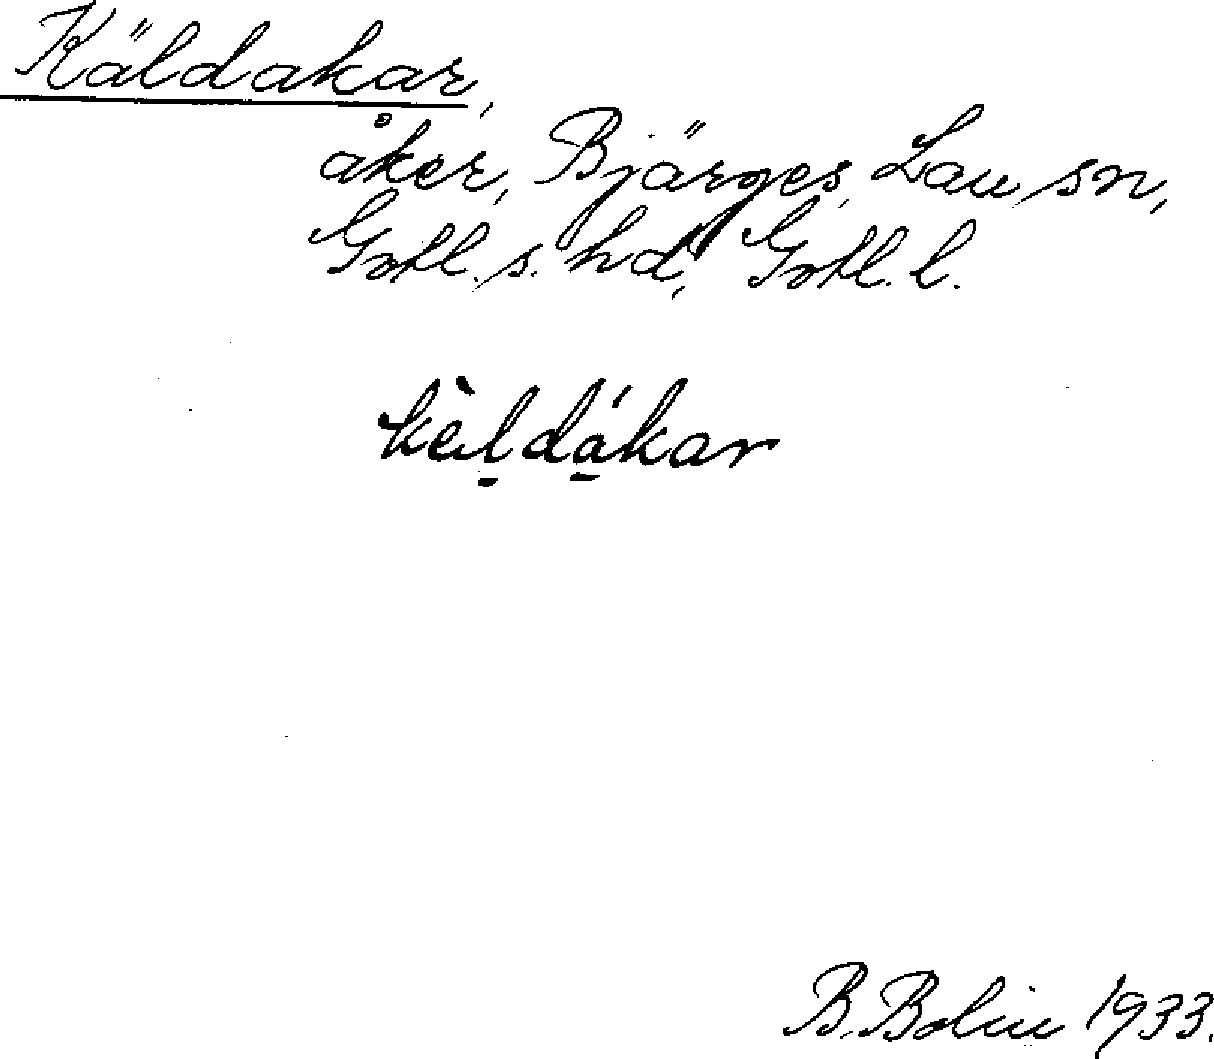 Käldakar,
åker, Bjärges, Lau sn,
Gotl. s. hd, Gotl. l.
kèḻdá̱kar
B. Bolin 1933.